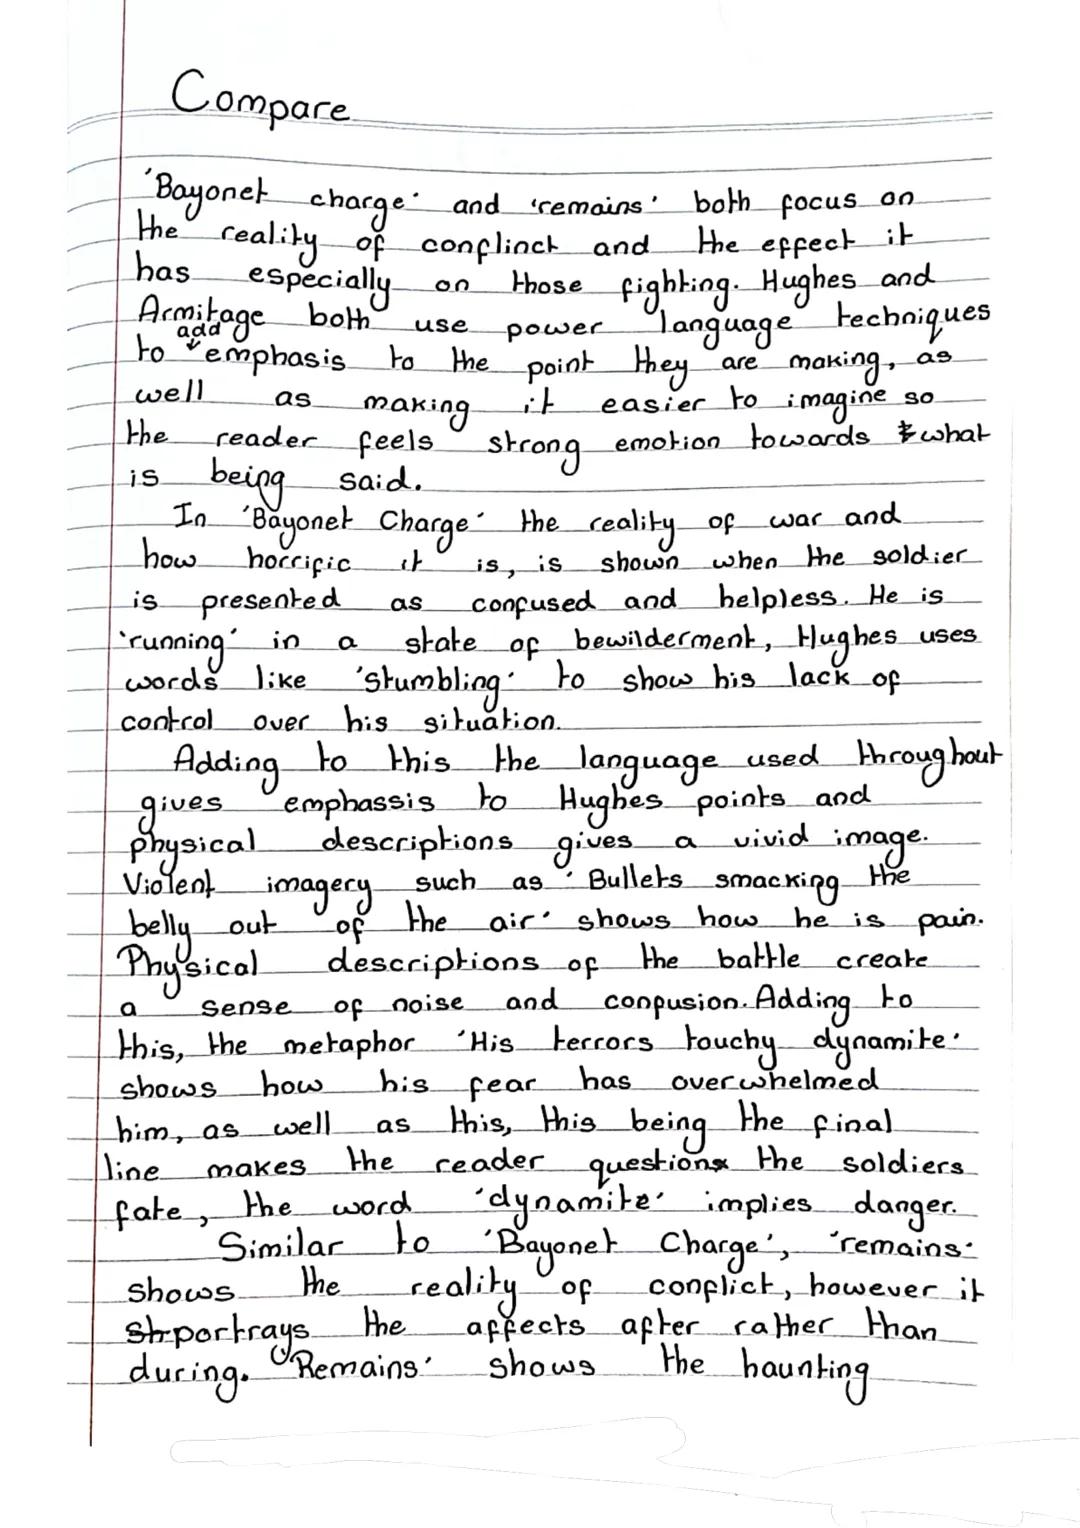 Compare
'Bayonet charge' and 'remains' both focus on
the reality of conflinct and the effect it
has especially on those fighting. Hughes and
Armitage both use power language techniques
to add emphasis to the point they are making, as
well as making it easier to imagine so
the reader feels strong emotion towards what
is being said.
In 'Bayonet Charge' the reality of war and
how horrific it is, is shown when the soldier
is presented as confused and helpless. He is
'running' in a state of bewilderment, Hughes uses
words like 'stumbling' to show his lack of
control over his situation.
Adding to this the language used throughout
gives emphassis to Hughes points and
physical descriptions gives a vivid image.
Violent imagery such as 'Bullets smacking the
belly out of the air' shows how he is pain.
Physical descriptions of the battle create
a sense of noise and confusion. Adding to
this, the metaphor 'His terrors touchy dynamite'
shows how his fear has overwhelmed
him, as well as this, this being the final
line makes the reader question the soldiers
fate, the word 'dynamite' implies danger.
Similar to 'Bayonet Charge', 'remains'
shows the reality of conflict, however it
portrays the affects after rather than
during. 'Remains' shows the haunting